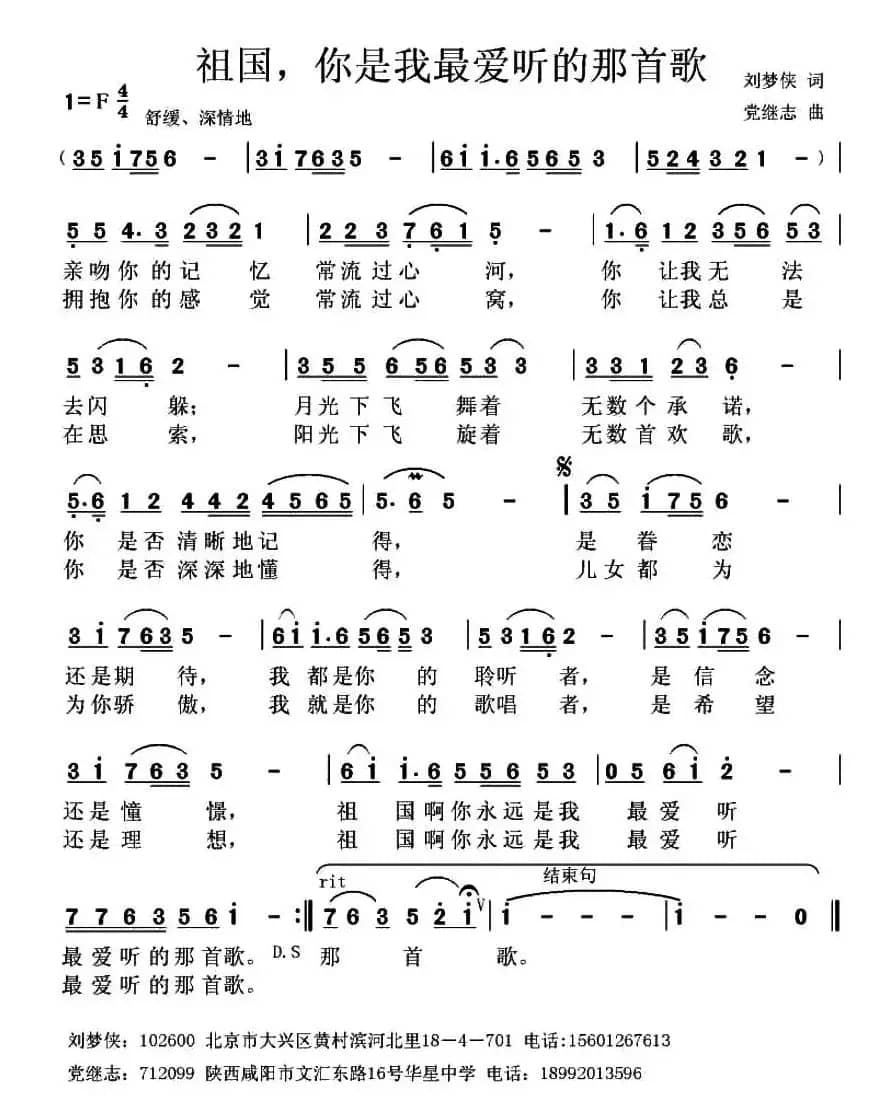 祖国，你是我最爱听的那首歌
刘梦侠 词
1=F 4/4
党继志 曲
舒缓、深情地
（3 5 i 7 5 6 - | 3 i 7 6 3 5 - | 6 i i. 6 5 6 5 3 | 5 2 4 3 2 1 - ）|
5 5 4. 3 2 3 2 1 | 2 2 3 7 6 1 5 - | 1. 6 1 2 3 5 6 5 3 |
亲吻你的记 忆 常流过心 河， 你 让我无 法
拥抱你的感 觉 常流过心 窝， 你 让我总 是
5 3 1 6 2 - | 3 5 5 6 5 6 5 3 3 | 3 3 1 2 3 6 - |
去闪 躲； 月光下飞 舞着 无数个承 诺，
在思 索， 阳光下飞 旋着 无数首欢 歌，
5. 6 1 2 4 4 2 4 5 6 5 | 5. 6 5 - | 3 5 i 7 5 6 - |
你 是否清晰地记 得， 是 眷 恋
你 是否深深地懂 得， 儿女都 为
3 i 7 6 3 5 - | 6 i i. 6 5 6 5 3 | 5 3 1 6 2 - | 3 5 i 7 5 6 - |
还是期 待， 我 都是你 的 聆听 者， 是 信 念
为你骄 傲， 我 就是你 的 歌唱 者， 是 希 望
3 i 7 6 3 5 - | 6 i i. 6 5 5 6 5 3 | 0 5 6 i 2 - |
还是憧 憬， 祖 国啊你永远是我 最爱听
还是理 想， 祖 国啊你永远是我 最爱听
rit 结束句
7 7 6 3 5 6 i - :‖ 7 6 3 5 2 i V | i - - - | i - - 0 ‖
最爱听的那首歌。 D.S 那 首 歌。
最爱听的那首歌。
刘梦侠：102600 北京市大兴区黄村滨河北里18－4－701 电话:15601267613
党继志：712099 陕西咸阳市文汇东路16号华星中学 电话：18992013596